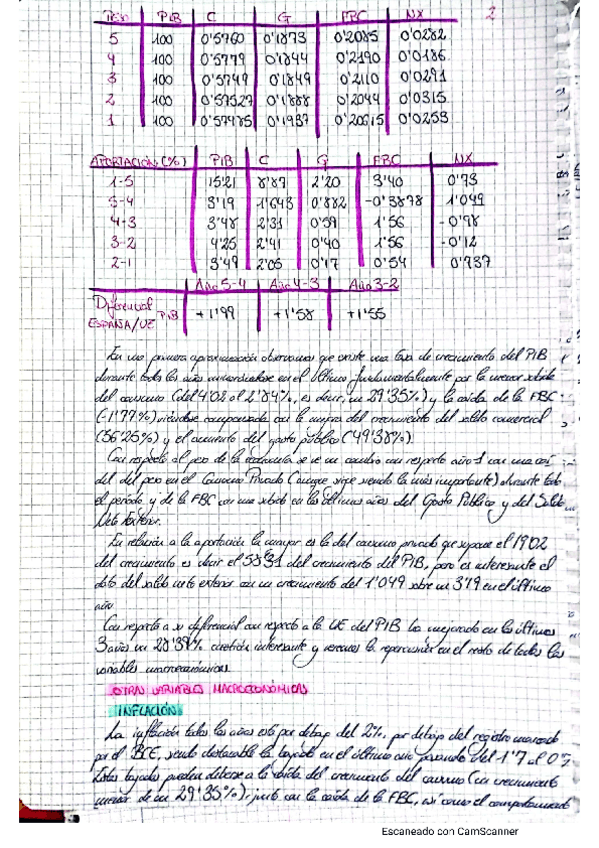 2
PESO PIB C G FBC NX
5 100 0'5760 0'1873 0'2085 0'0282
4 100 0'5779 0'1844 0'2190 0'0186
3 100 0'5749 0'1849 0'2110 0'0291
2 100 0'57527 0'1888 0'2044 0'0315
1 100 0'57485 0'1937 0'20615 0'0253
APORTACIÓN (%) PIB C G FBC NX
1-5 15'21 8'87 2'20 3'40 0'73
5-4 3'19 1'643 0'882 -0'3878 1'049
4-3 3'48 2'31 0'59 1'56 -0'98
3-2 4'25 2'41 0'40 1'56 -0'12
2-1 3'49 2'05 0'17 0'54 0'737
Año 5-4 Año 4-3 Año 3-2
Diferencial
ESPAÑA/UE PIB +1'99 +1'58 +1'55
En una primera aproximación observamos que existe una tasa de crecimiento del PIB
durante todos los años en el último fundamentalmente por la menor subida
del consumo (del 4'02 al 2'84%, es decir, un 29'35%) y la caída de la FBC
(-1'77%) viéndose compensada con la mejora del crecimiento del saldo comercial
(56'25%) y el aumento del gasto público (49'38%).
Con respecto al peso de la economía se ve un cambio con respecto año 1 con una
del peso en el Consumo Privado (aunque sigue siendo la más importante) durante todo
el período y de la FBC con una subida en los últimos años del Gasto Público y del Saldo
Neto Exterior.
En relación a la aportación la mayor es la del consumo privado que supone el
del crecimiento es decir el 58'31 del crecimiento del PIB, pero es interesante el
dato del saldo neto exterior con un crecimiento del 1'049 sobre un 3'19 en el último
año
Con respecto a su diferencial con respecto a la UE del PIB ha mejorado en los últimos
3 años un 28'39% cuestión interesante y veremos la repercusión en el resto de todas las
variables macroeconómicas.
OTRAS VARIABLES MACROECONÓMICAS
INFLACIÓN
La inflación todos los años está por debajo del 2%, por debajo del registro marcado
por el BCE, siendo destacable la bajada en el último año pasando del 1'7 al
Estas bajadas pueden deberse a la caída del crecimiento del consumo (un crecimiento
menor de un 29'35%), junto con la caída de la FBC, así como el comportamiento
Escaneado con CamScanner